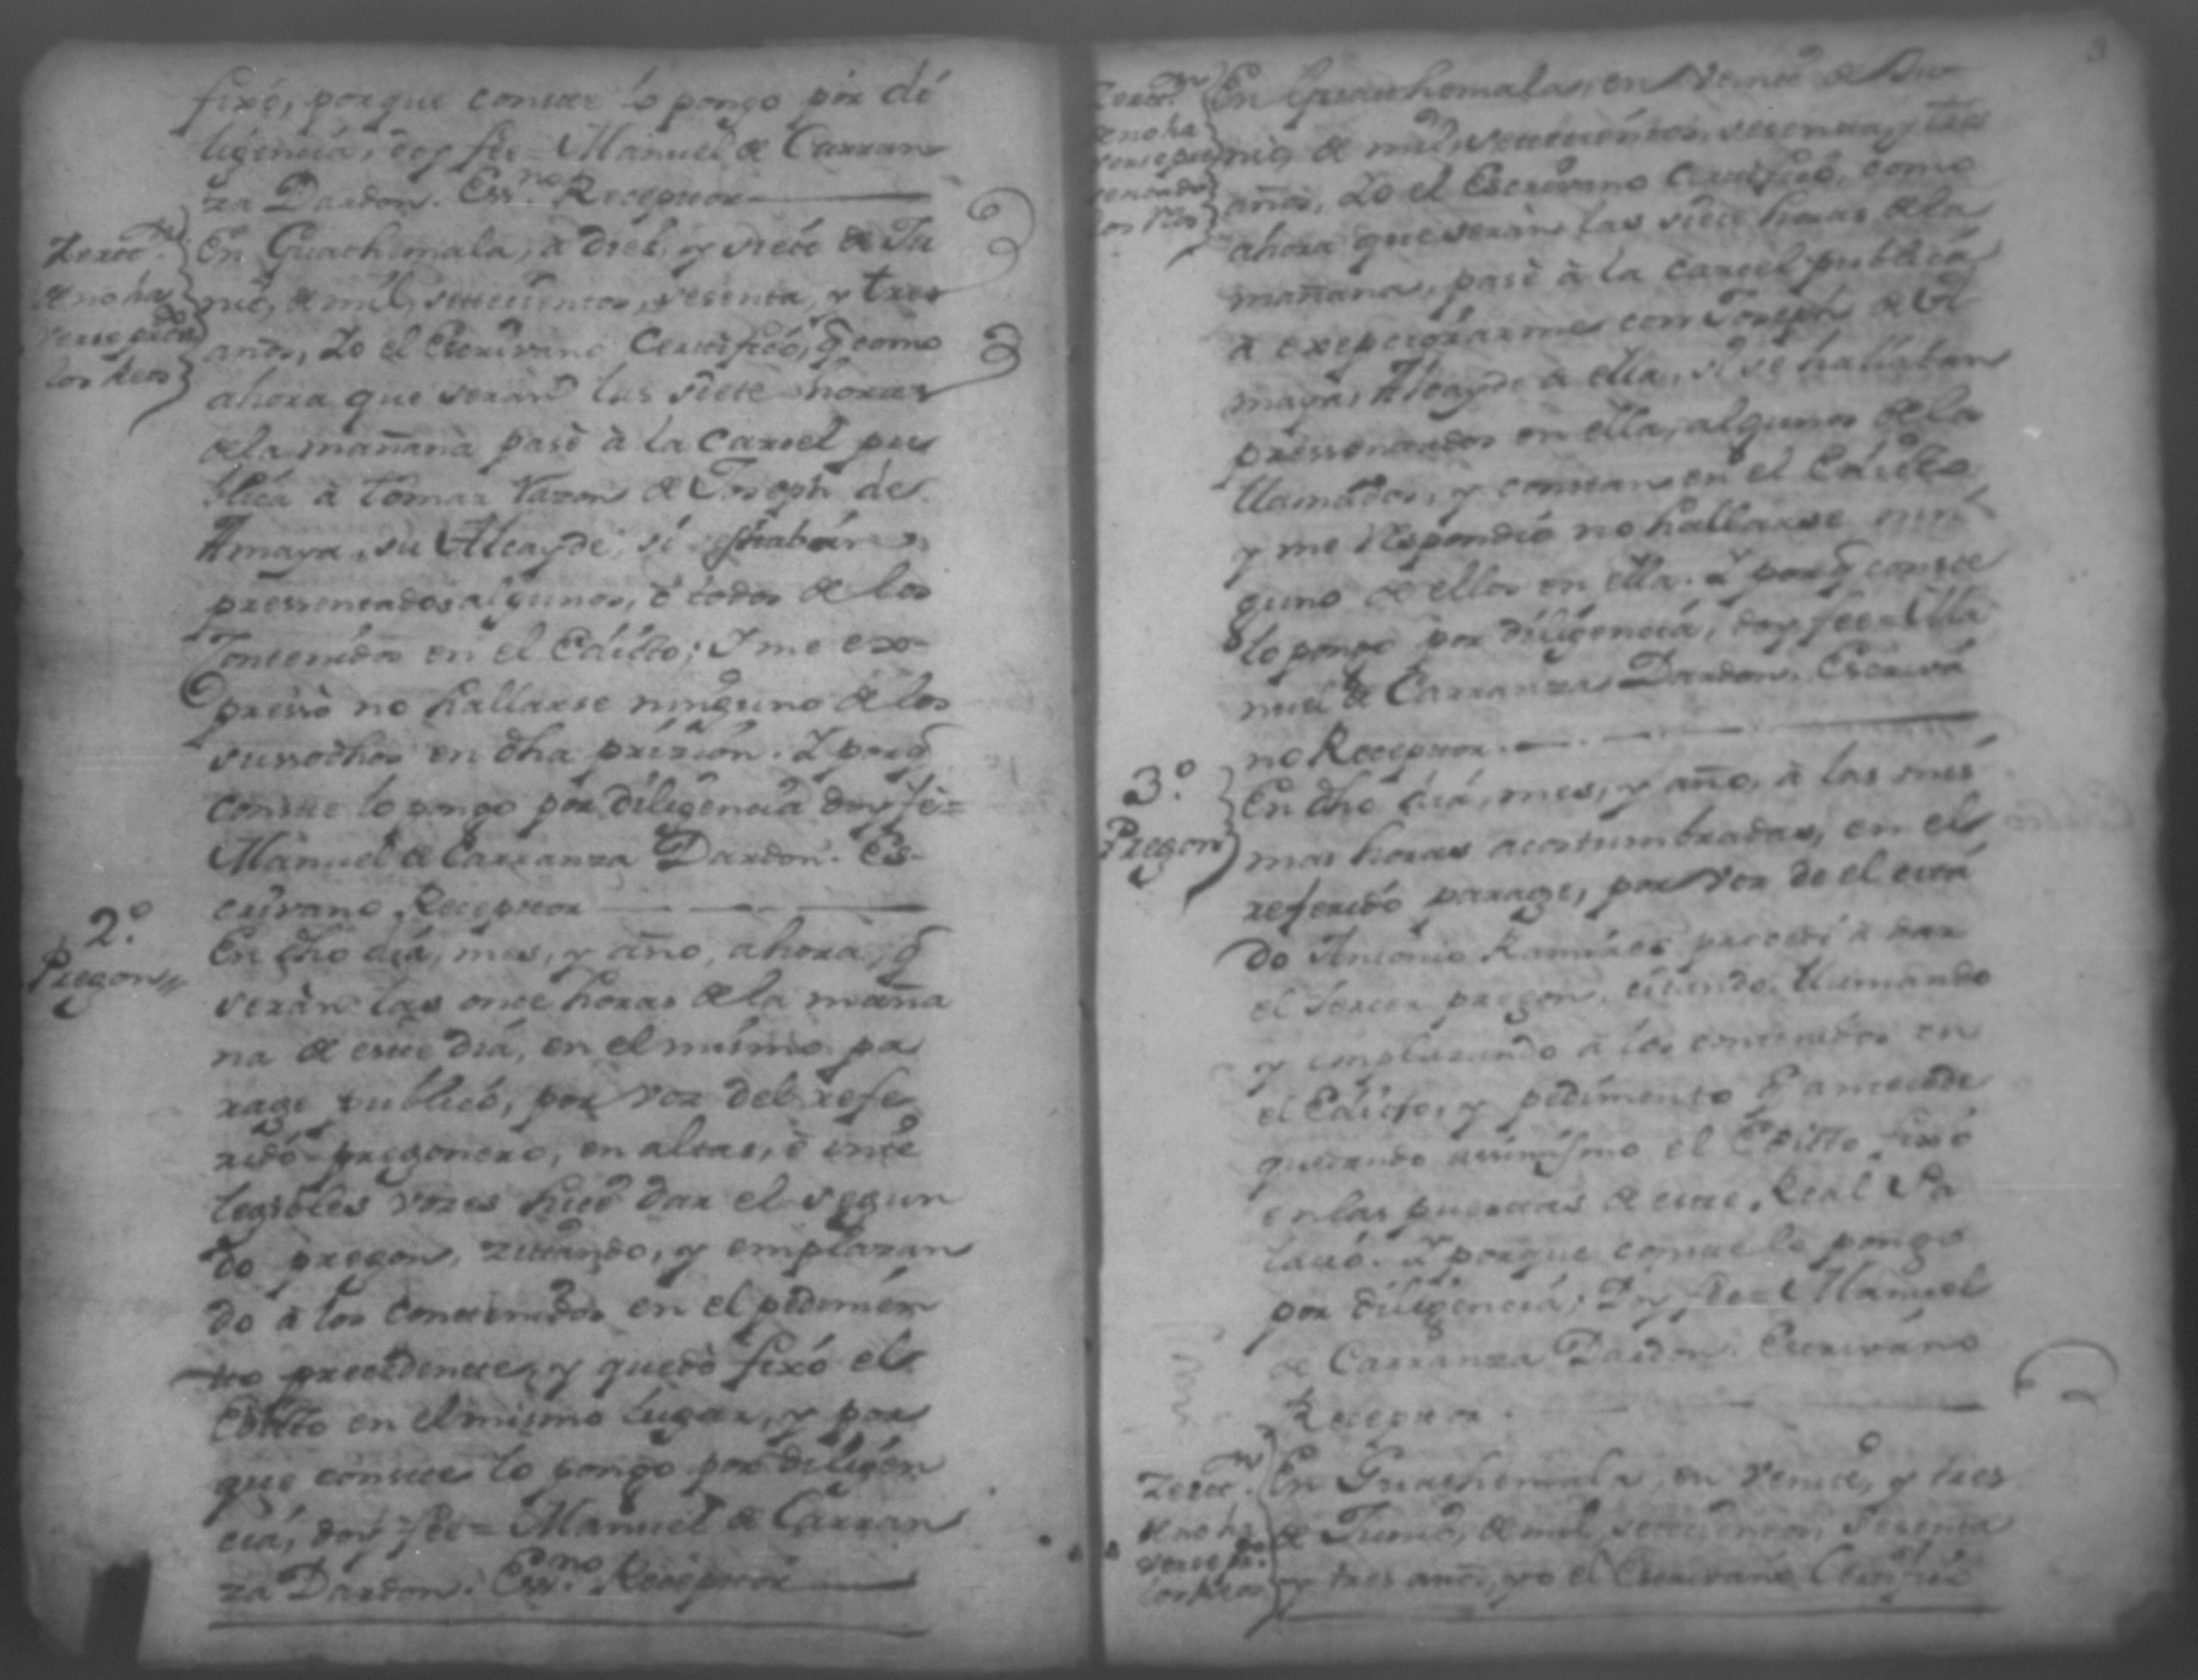 fixó, porque conste lo pongo por di
ligencia, doy fee = Manuel de Carran
za Dardon. Ess.no Receptor
Zertt.n
de no ha
verse pres.do
los Reos
En Guathemala, à diez, y siete de Ju
nio, de mil, settecientos, sesenta, y tres
años, Yo el Escrivano Certifico, q̃ como
ahora que seran las siete horas
de la mañana pasè à la Carcel pu
blica à tomar razon de Joseph de
Amaya, su Alcayde, si se habian
pressentados algunos, ò todos de los
Contenidos en el Edicto; Y me ex-
pressò no hallarse ninguno de los
sussodhos en dha prizion. Y porq̃
conste lo pongo por diligencia doy fe=
Manuel de Carranza Dardon. Es-
crivano Receptor
2.o
Pregon
En dho dia, mes, y año, ahora, q̃
seràn las once horas de la maña
na de este dia, en el mismo pa
rage publico, por voz del refe
rido pregonero, en altas, è inte
legibles vozes hice dar el segun
do pregon, zitando, y emplazan
do à los contenidos en el pedimen
to precedente, y quedò fixó el
Edicto en el mismo lugar, y por
que conste lo pongo por diligen
cia, doy fee = Manuel de Carran
za Dardon. Ess.no Receptor
3
Zertt.n
de no ha
verse pre
sentado
los Ros
En Guathemala, en veinte de Ju
nio, de mil, settecientos, sesenta, y tres
años, Yo el Escrivano Certifico, como
ahora que seràn las siete horas de la
mañana, pasè à la Carcel publica
à con Joseph de A
maya, Alcayde de ella, si se hallaban
pressentados en ella, algunos de los
llamados, y constan en el Edicto
y me respondiò no hallarse nin
guno de ellos en ella. Y porq̃ conste
lo pongo por diligencia, doy fee = Ma
nuel de Carranza Dardon. Escriva
no Receptor.
3.o
Pregon
En dho dia, mes, y año, à las mes
mas horas acostumbradas, en el
referido parage, por voz de el cita
do Antonio Ramires procedi à dar
el tercer pregon, citando, llamando
y emplazando à los contenidos en
el Edicto, y pedimento q̃ antecede
quedando assimismo el Edicto fixó
en las puertas de este Real Pa
lacio. Y porque conste lo pongo
por diligencia; Doy fee = Manuel
de Carranza Dardon. Escrivano
Receptor.
Zertt.n
de no ha
verse pr.do
los Reos
En Guathemala, en veinte, y tres
de Junio, de mil, settecientos, sesenta
y tres años, yo el Escrivano Certifico